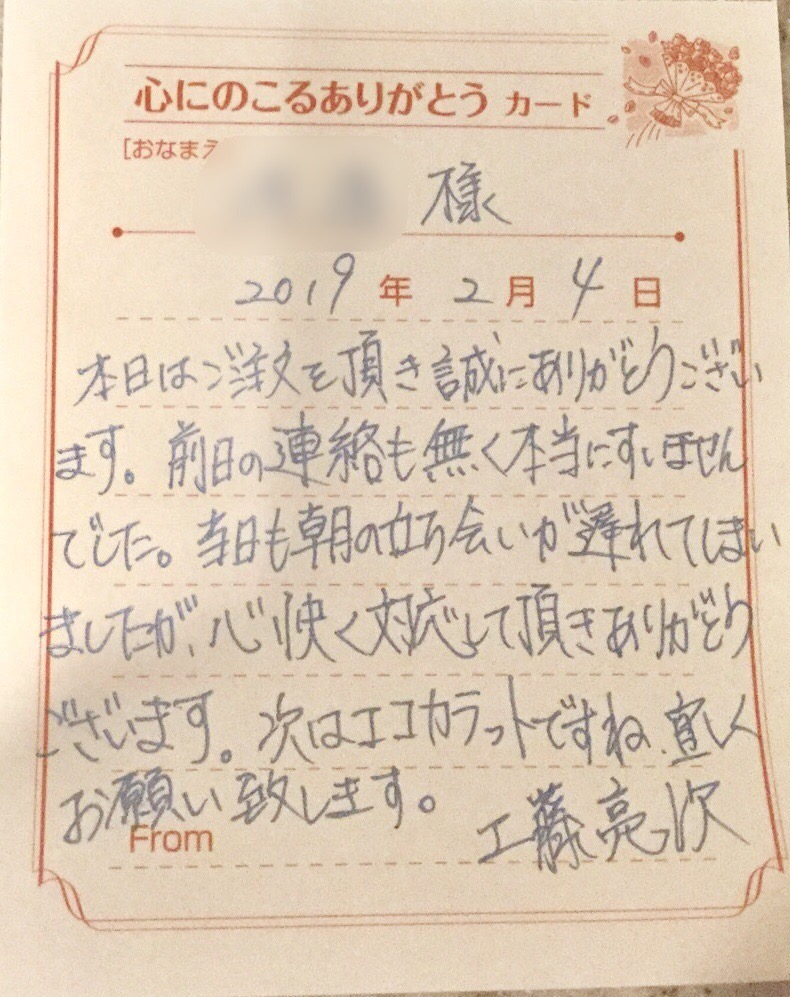 心にのこるありがとう カード
[おなまえ
様
2019 年 2 月 4 日
本日はご注文を頂き誠にありがとうござい
ます。前日の連絡も無く本当にすいません
でした。当日も朝の立ち会いが遅れてしまい
ましたが、心快く対応して頂きありがとう
ございます。次はエコカラットですね、宜しく
お願い致します。
From 工藤亮次